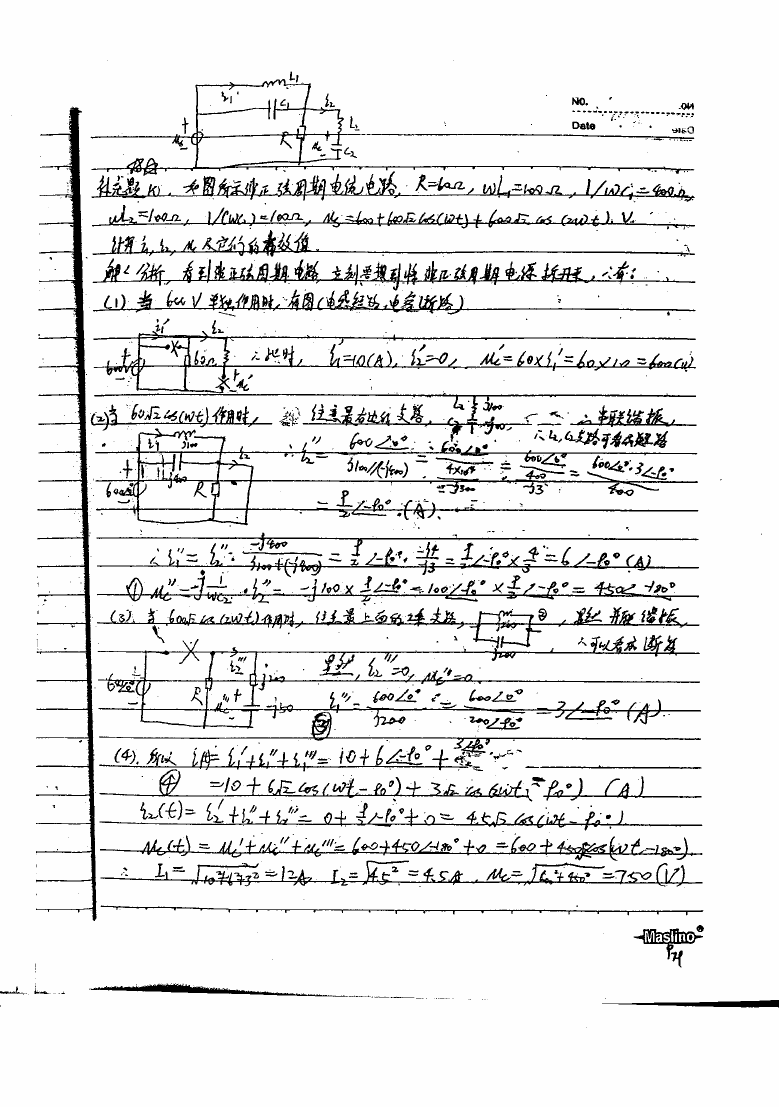 NO.
Date
L₁
i₁ C₁ i₂
L₂
+ us - R + uc - C₂
补充题(1). 如图所示非正弦周期电流电路, R=60Ω, ωL₁=100Ω, 1/ωC₁=400Ω,
ωL₂=100Ω, 1/(ωC₂)=100Ω, us=600+600√2cos(ωt)+600√2 cos (2ωt). V.
计算i₁, i₂, uc及它们的有效值.
解: 分析, 看到非正弦周期电路 立刻要想到将非正弦周期电源拆开来, ∴有:
(1) 当 600 V 单独作用时, 有图(电感短路, 电容断路)
∴此时, i₁'=10(A), i₂'=0, uc'=60×i₁'=60×10=600(V)
(2)当 60√2cos(ωt)作用时, 注意最右边的支路, ∴串联谐振,
∴L₂,C₂支路可看成短路
∴i₂''= 600∠0° / j100//(-j400) = 600∠0° / 4×10⁴/-j300 = 600∠0° / 400/-j3 = 600∠0°·3∠-90° / 400
= 9/2∠-90° (A).
∴i₁''= i₂''· -j400 / j100+(-j400) = 9/2∠-90°· -j4/-j3 = 9/2∠-90°×4/3 = 6∠-90° (A)
① uc''=-j 1/ωC₂ · i₂''= -j100× 9/2∠-90° = 100∠-90° × 9/2∠-90° = 450∠-180°
(3). 当 600√2cos(2ωt)作用时, 注意上面的2条支路, 显然 并联谐振,
∴可以看成断路
显然, i₂'''=0, uc'''=0.
i₁'''= 600∠0° / j200 = 600∠0° / 200∠90° = 3∠-90° (A)
(4). 所以 i₁= i₁'+i₁''+i₁'''= 10+6∠-90°+ 3∠-90°
=10+6√2cos(ωt-90°)+3√2cos(2ωt-90°) (A)
i₂(t)= i₂'+i₂''+i₂'''= 0+ 9/2∠-90°+0 = 4.5√2cos(ωt-90°)
uc(t)= uc'+uc''+uc'''=600+450∠-180°+0 =600+450√2cos(ωt-180°).
∴ I₁=√10²+6²+3²=12A I₂=√4.5²=4.5A, uc=√600²+450²=750(V)
Maslino®